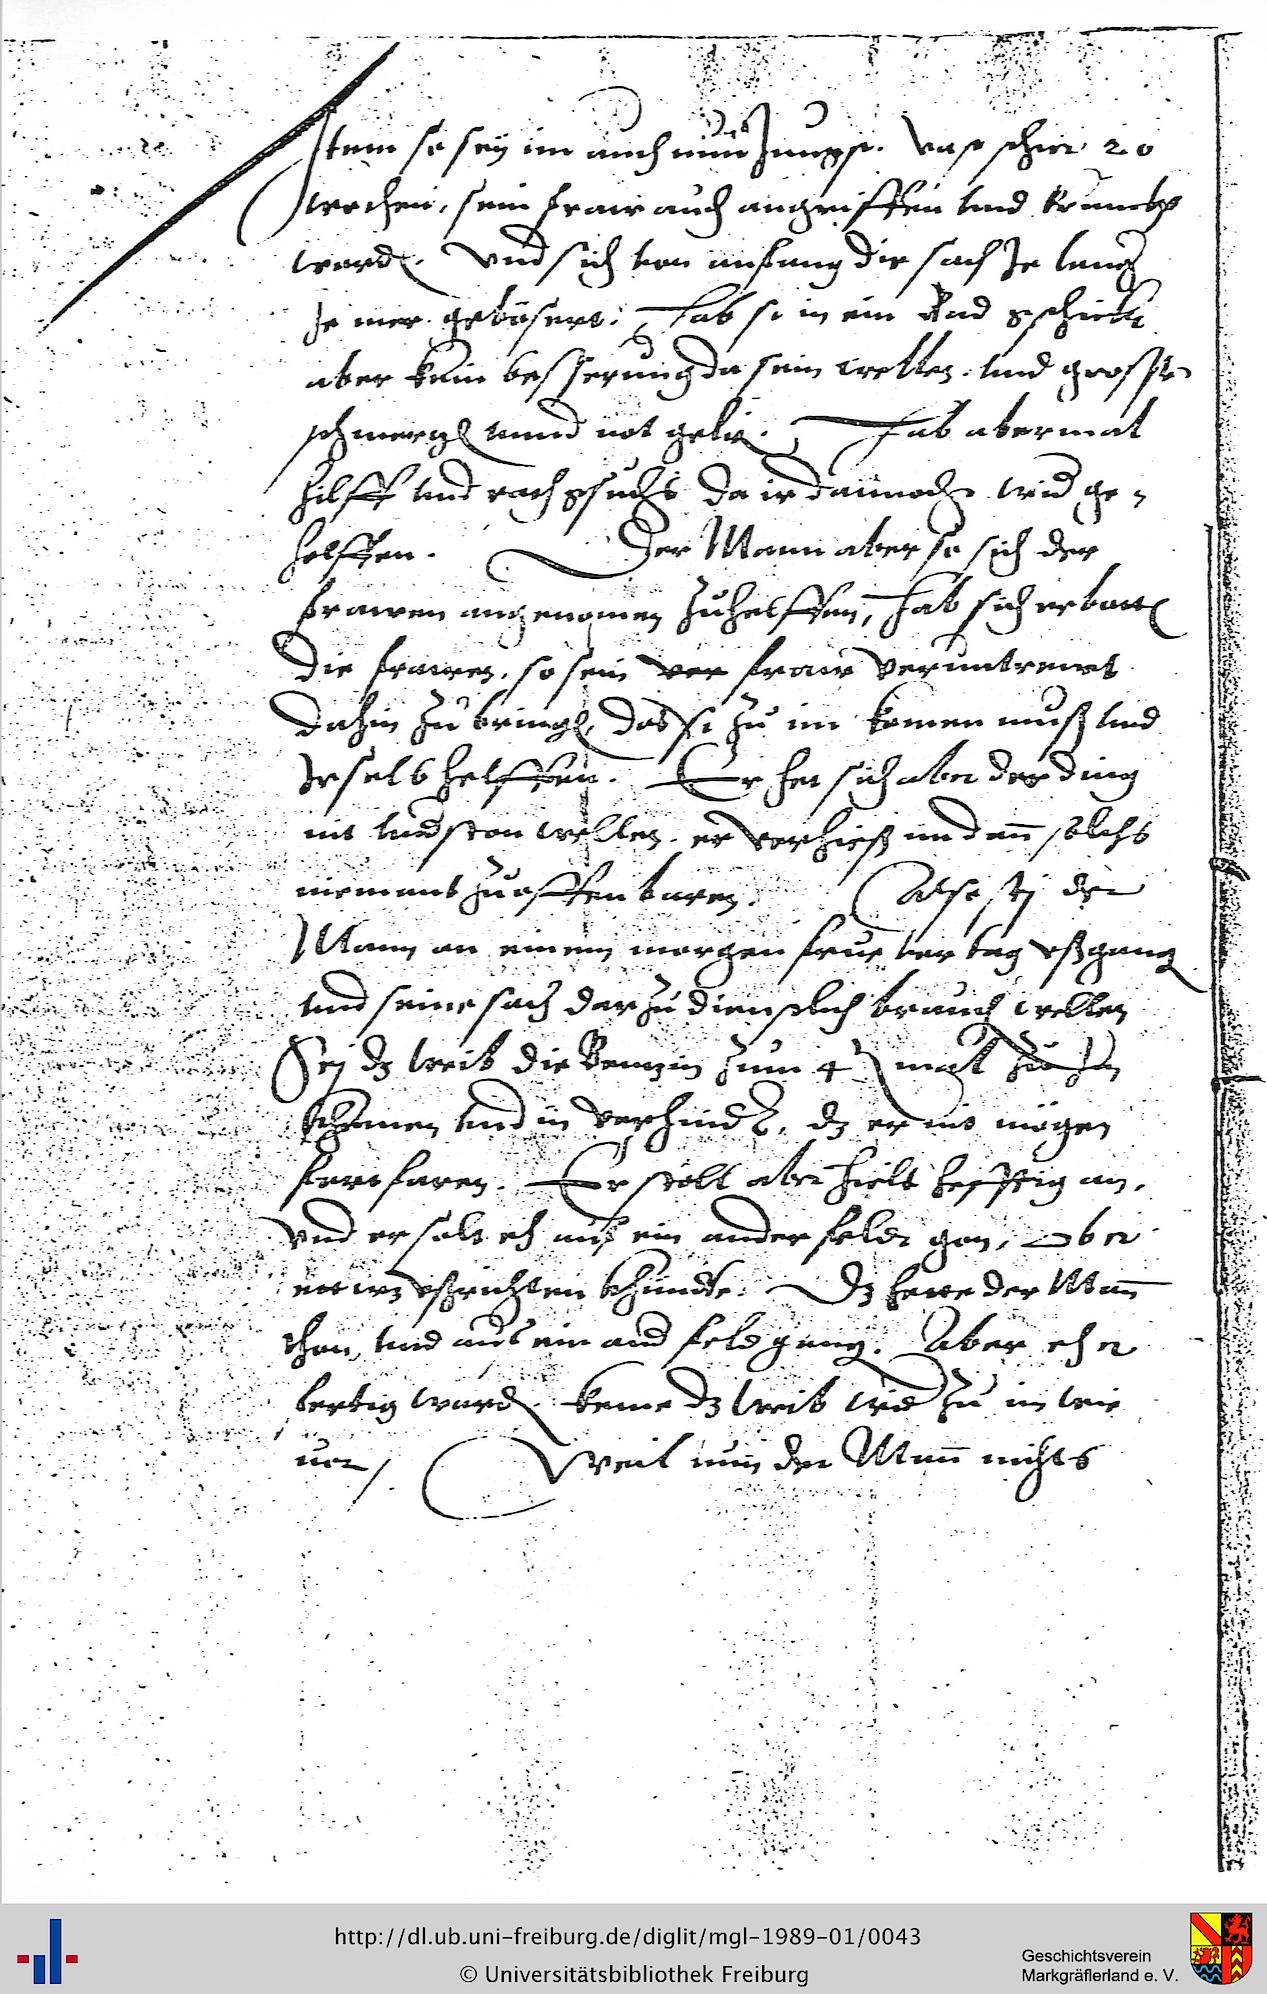 Item so sey im auch nun Jungst. vast schier 20
wochen, sein fraw auch angriffen und kranckh
word. Und sich von anfang die sach Je leng
Je mer gebösert. Hab si in ein Bad gschickt
aber kein besserung da sein wellen. und grosse
schmerzen unnd not gelit. Hab abermal
hilff und rath gsucht da ir dannocht wid ge-
holffen. Der Mann aber so sich der
frawen angenomen zuhelffen, hab sich erbotten
die frawen, so sein fraw veruntrewt
dahin zu bringen, das si zu im komen muß und
Ir selb helffen. Er het sich aber der ding
nit underston wellen. er verhieß im dann solchs
niemants zuoffenbaren. Also sej der
Mann an einem morgen frue vor tag ußgang
und seine sach dar zu dienstlich bruch wellen
Sej dz weib die zum 4 mal zu Im
khomen und in verhindt, dz er nit mögen
fort faren. Er solt aber hielt hefftig an,
und er solt eh auf ein ander feld gon, ober
etwz ußrichten khundte. Dz hette der Mann
than, und auf ein and feld gang. Aber eh er
fertig ward. keme dz weib wid zu im wie
vor /. Weil nun der Mann nichts
http://dl.ub.uni-freiburg.de/diglit/mgl-1989-01/0043
© Universitätsbibliothek Freiburg
Geschichtsverein
Markgräflerland e. V.